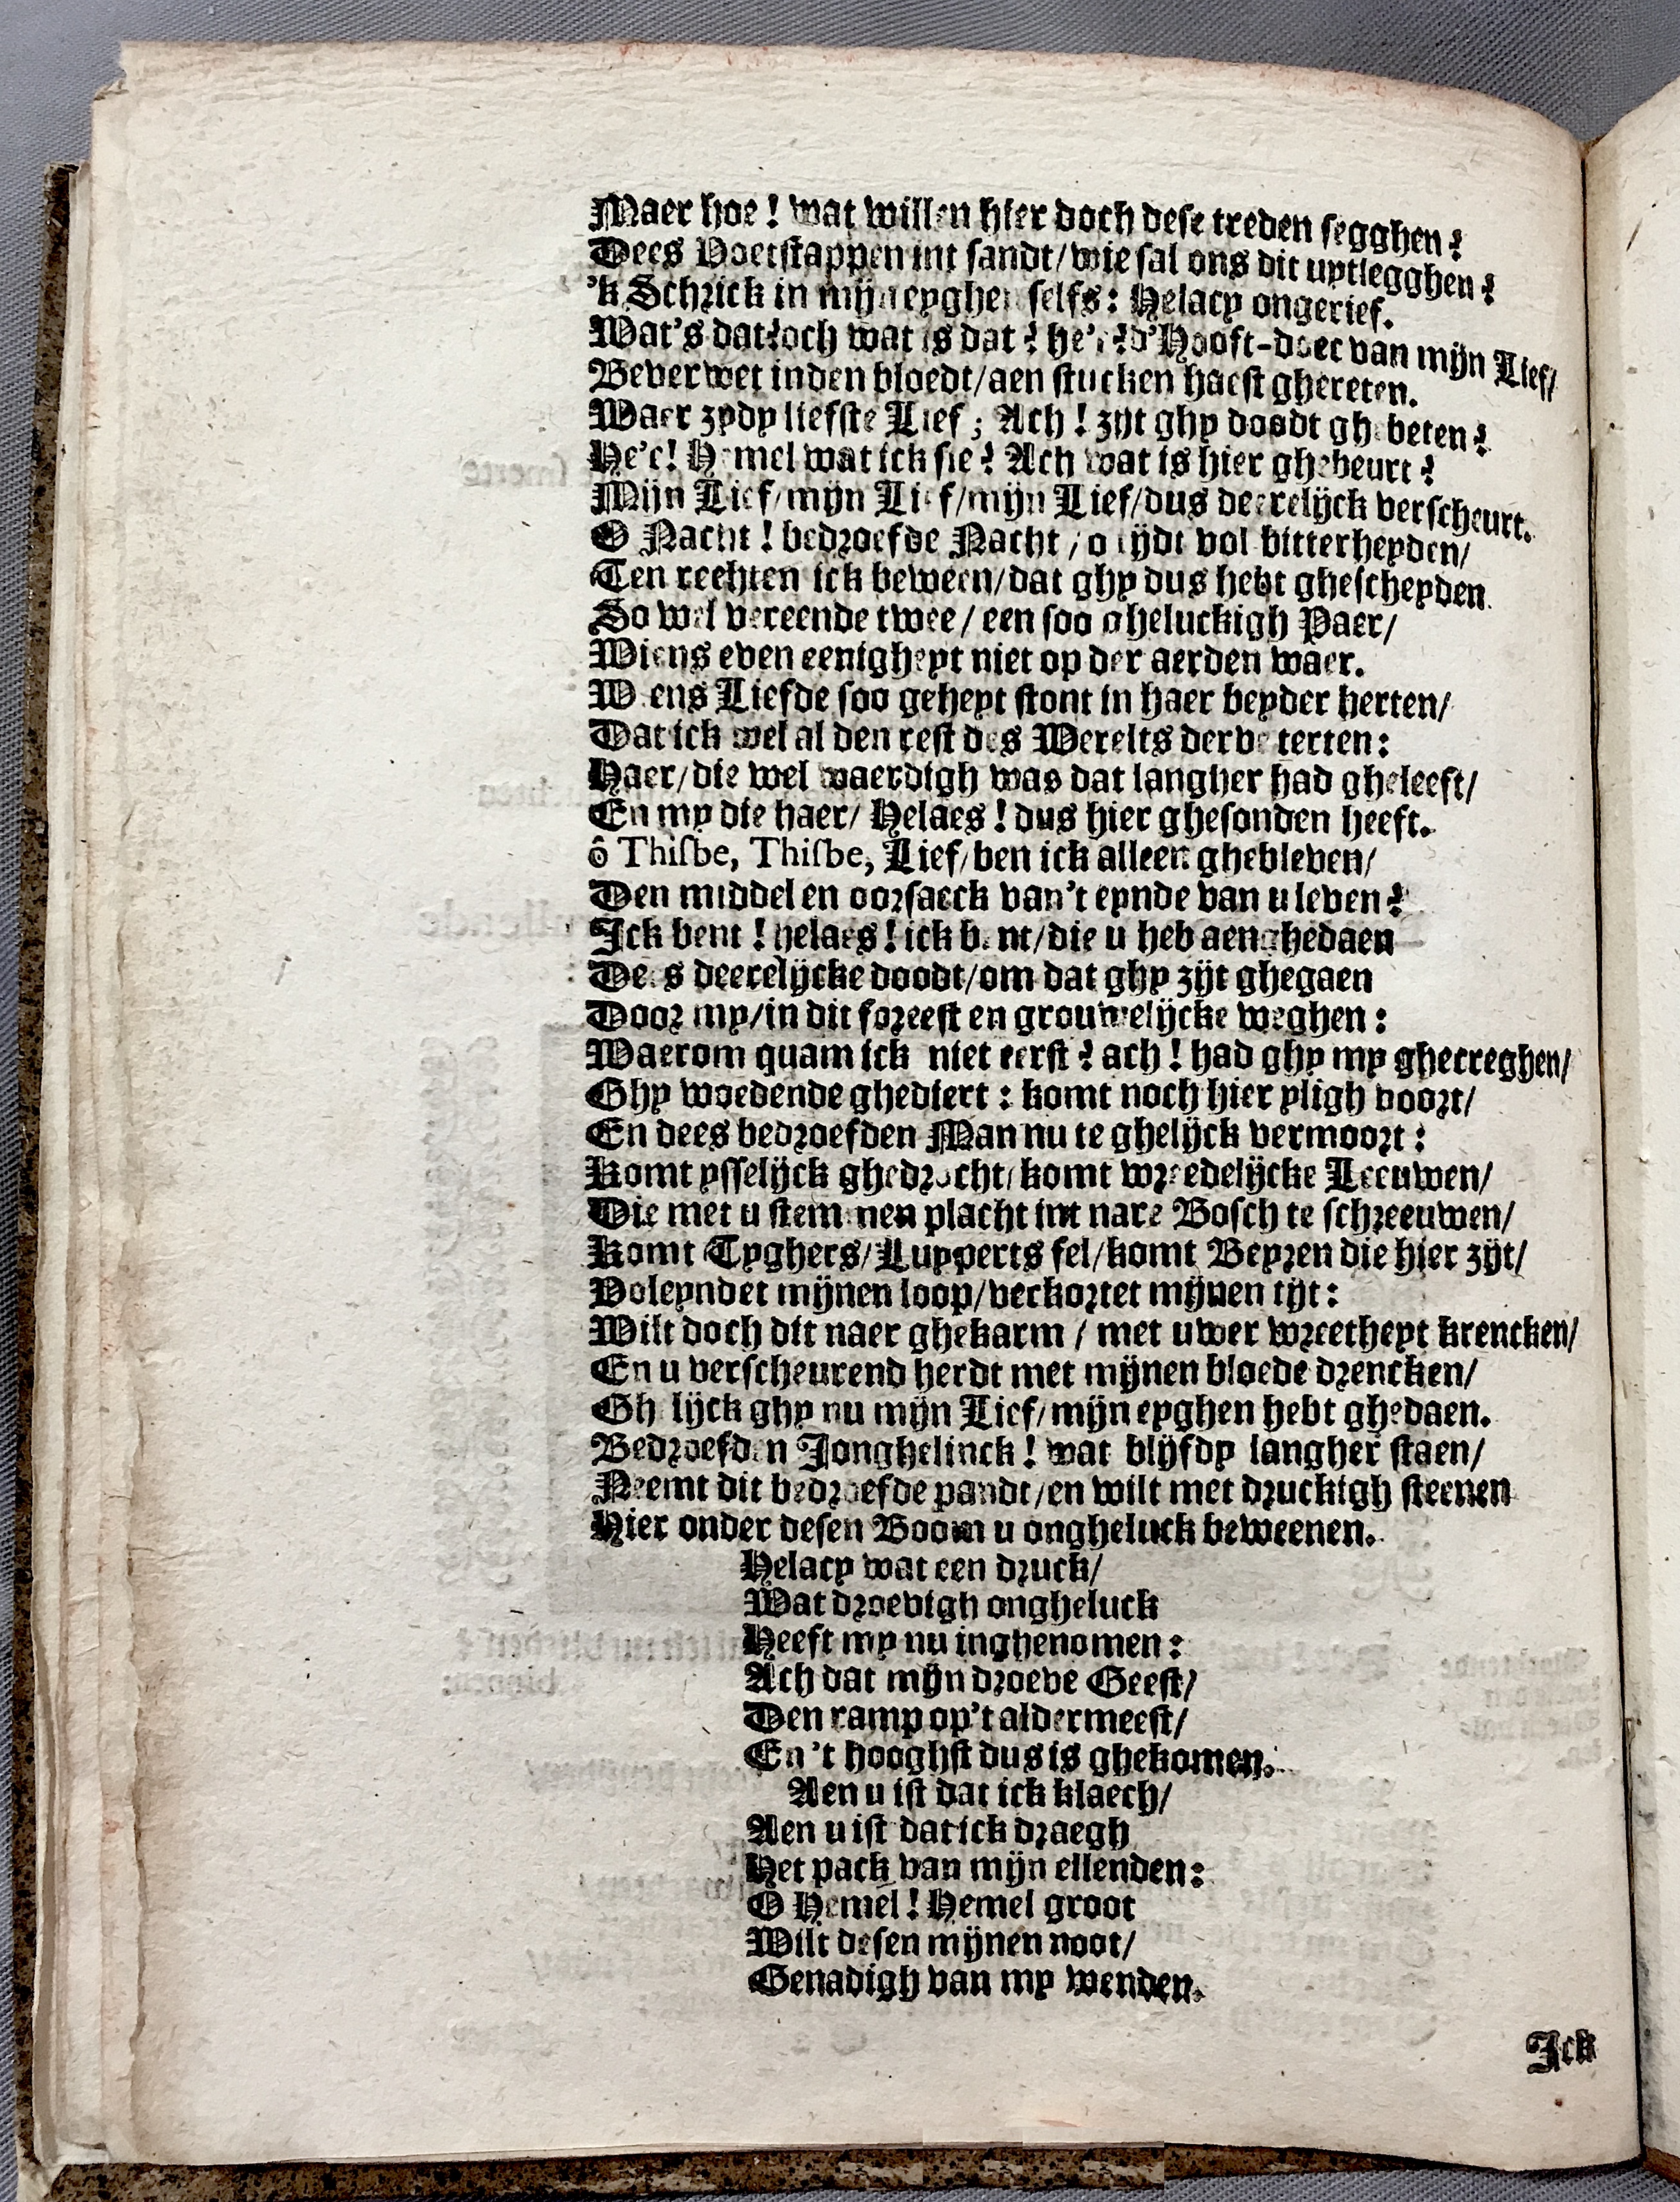 Maer hoe! wat willen hier doch dese treden segghen?
Dees Voetstappen int sandt/wie sal ons dit uytlegghen?
'k Schrick in mijn eyghen selfs: Helacy ongerief.
Wat's dat? och wat is dat? he'c? d'Hooft-doec van mijn Lief/
Beverwet inden bloedt/aen stucken haest ghereten.
Waer zydy liefste Lief; Ach! zijt ghy doodt ghebeten?
He'c! Hemel wat ick sie? Ach wat is hier ghebeurt?
Mijn Lief/mijn Lief/mijn Lief/dus deerelijck verscheurt.
O Nacht! bedroefde Nacht/o tijdt vol bitterheyden/
Ten rechten ick beween/dat ghy dus hebt ghescheyden
So wel vereende twee/een soo gheluckigh Paer/
Wiens even eenigheyt niet op der aerden waer.
Wiens Liefde soo geheyt stont in haer beyder herten/
Dat ick wel al den rest des Werelts derve terten:
Haer/die wel waerdigh was dat langher had gheleeft/
En my die haer/Helaes! dus hier ghesonden heeft.
ô Thisbe, Thisbe, Lief/ben ick alleen ghebleven/
Den middel en oorsaeck van't eynde van u leven?
Ick bent! helaes! ick bent/die u heb aenghedaen
Dees deerelijcke doodt/om dat ghy zijt ghegaen
Door my/in dit foreest en grouwelijcke weghen:
Waerom quam ick niet eerst? ach! had ghy my ghecreghen/
Ghy woedende ghediert: komt noch hier yligh voort/
En dees bedroefden Man nu te ghelijck vermoort:
Komt ysselijck ghedrocht/komt wreedelijcke Leeuwen/
Die met u stemmen placht int nare Bosch te schreeuwen/
Komt Tyghers/Lupperts fel/komt Beyren die hier zijt/
Voleyndet mijnen loop/verkortet mijnen tijt:
Wilt doch dit naer ghekarm/met uwer wreetheyt krencken/
En u verscheurend herdt met mijnen bloede drencken/
Ghelijck ghy nu mijn Lief/mijn eyghen hebt ghedaen.
Bedroefden Jonghelinck! wat blijfdy langher staen/
Neemt dit bedroefde pandt/en wilt met druckigh steenen
Hier onder desen Boom u ongheluck beweenen.
Helacy wat een druck/
Wat droevigh ongheluck
Heeft my nu inghenomen:
Ach dat mijn droeve Geest/
Den ramp op't aldermeest/
En 't hooghst dus is ghekomen.
Aen u ist dat ick klaech/
Aen u ist dat ick draegh
Het pack van mijn ellenden:
O Hemel! Hemel groot
Wilt desen mijnen noot/
Genadigh van my wenden.
Ick